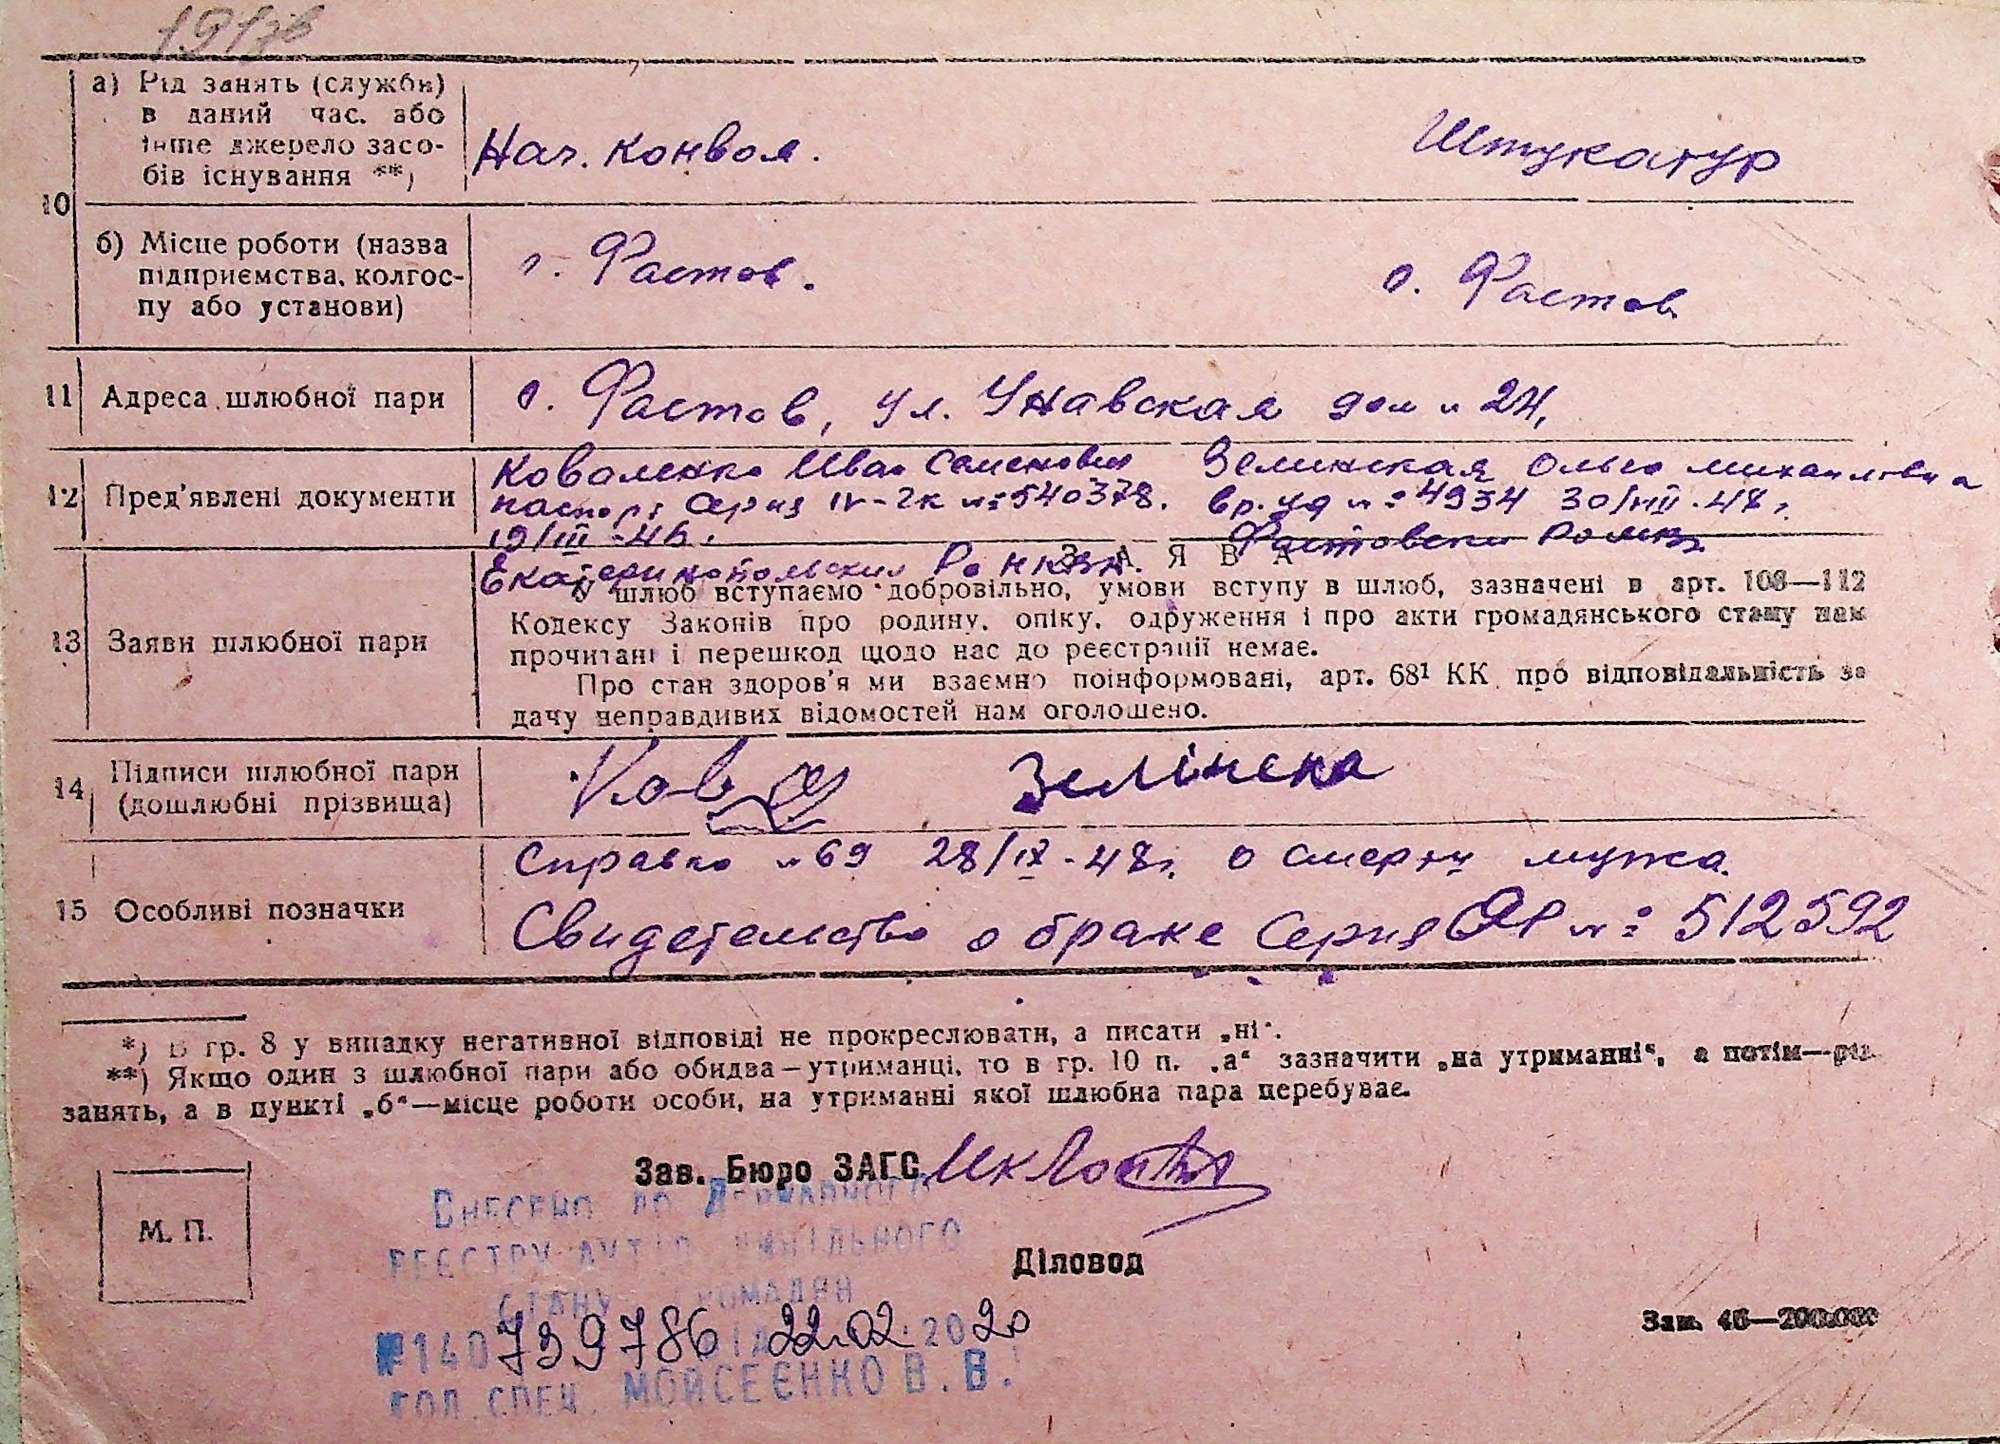 191зв
а) Рід занять (служби)
в даний час. або
інше джерело засо-
бів існування **)
Нач. конвоя.
Штукатур
10
б) Місце роботи (назва
підприємства, колгос-
пу або установи)
г. Фастов.
г. Фастов
11 Адреса шлюбної пари
г. Фастов, ул. Унавская дом н 24,
12 Пред'явлені документи
Коваленко Иван Семенович
паспорт серия IV-ЧК №540378.
19/III-46.
Екатеринопольским Ро НКВД.
Зелинская Ольга Михайловна
вр. уд №: 4934 30/VIII-47 г.
Фастовским
ЗАЯВА
13 Заяви шлюбної пари
У шлюб вступаємо добровільно, умови вступу в шлюб, зазначені в арт. 108—112
Кодексу Законів про родину, опіку, одруження і про акти громадянського стану нам
прочитані і перешкод щодо нас до реєстрації немає.
Про стан здоров'я ми взаємно поінформовані, арт. 68¹ КК про відповідальність за
дачу неправдивих відомостей нам оголошено.
14 Підписи шлюбної пари
(дошлюбні прізвища)
Ков
Зелінска
15 Особливі позначки
Справка н 69 28/IX-48г. о смерти мужа.
Свидетельство о браке Серия №: 512592
*) В гр. 8 у випадку негативної відповіді не прокреслювати, а писати „ні“.
**) Якщо один з шлюбної пари або обидва—утриманці, то в гр. 10 п. „а“ зазначити „на утриманні“, а потім—рід
занять, а в пункті „б“—місце роботи особи, на утриманні якої шлюбна пара перебуває.
Зав. Бюро ЗАГС
М. П.
Внесено до Державного
реєстру актів цивільного
стану громадян
Діловод
№140739786 від 22.02.2020
гол. спец. Мойсеєнко В.В.
Зам. 46—200.000